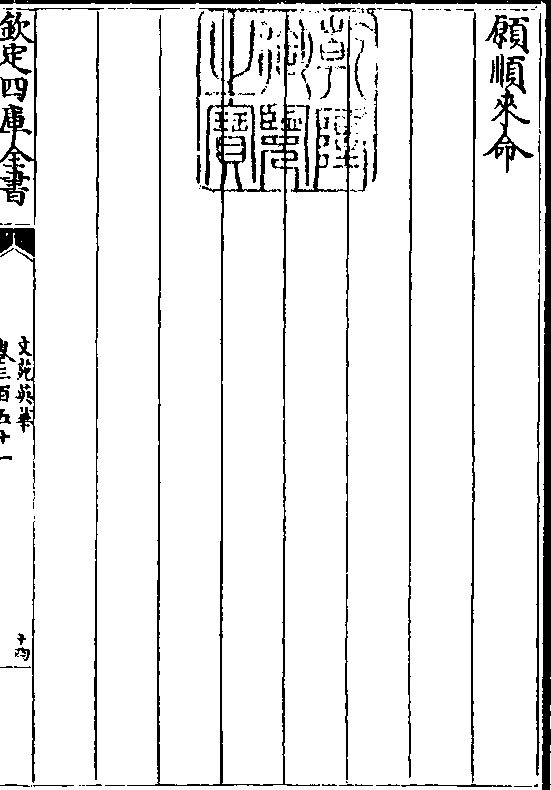 願順來命
乾隆御覽之寶
欽定四庫全書
文苑英華
卷三百五十一
十四